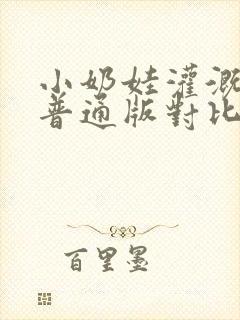 小奶娃灌溉
普通版對比
百里墨